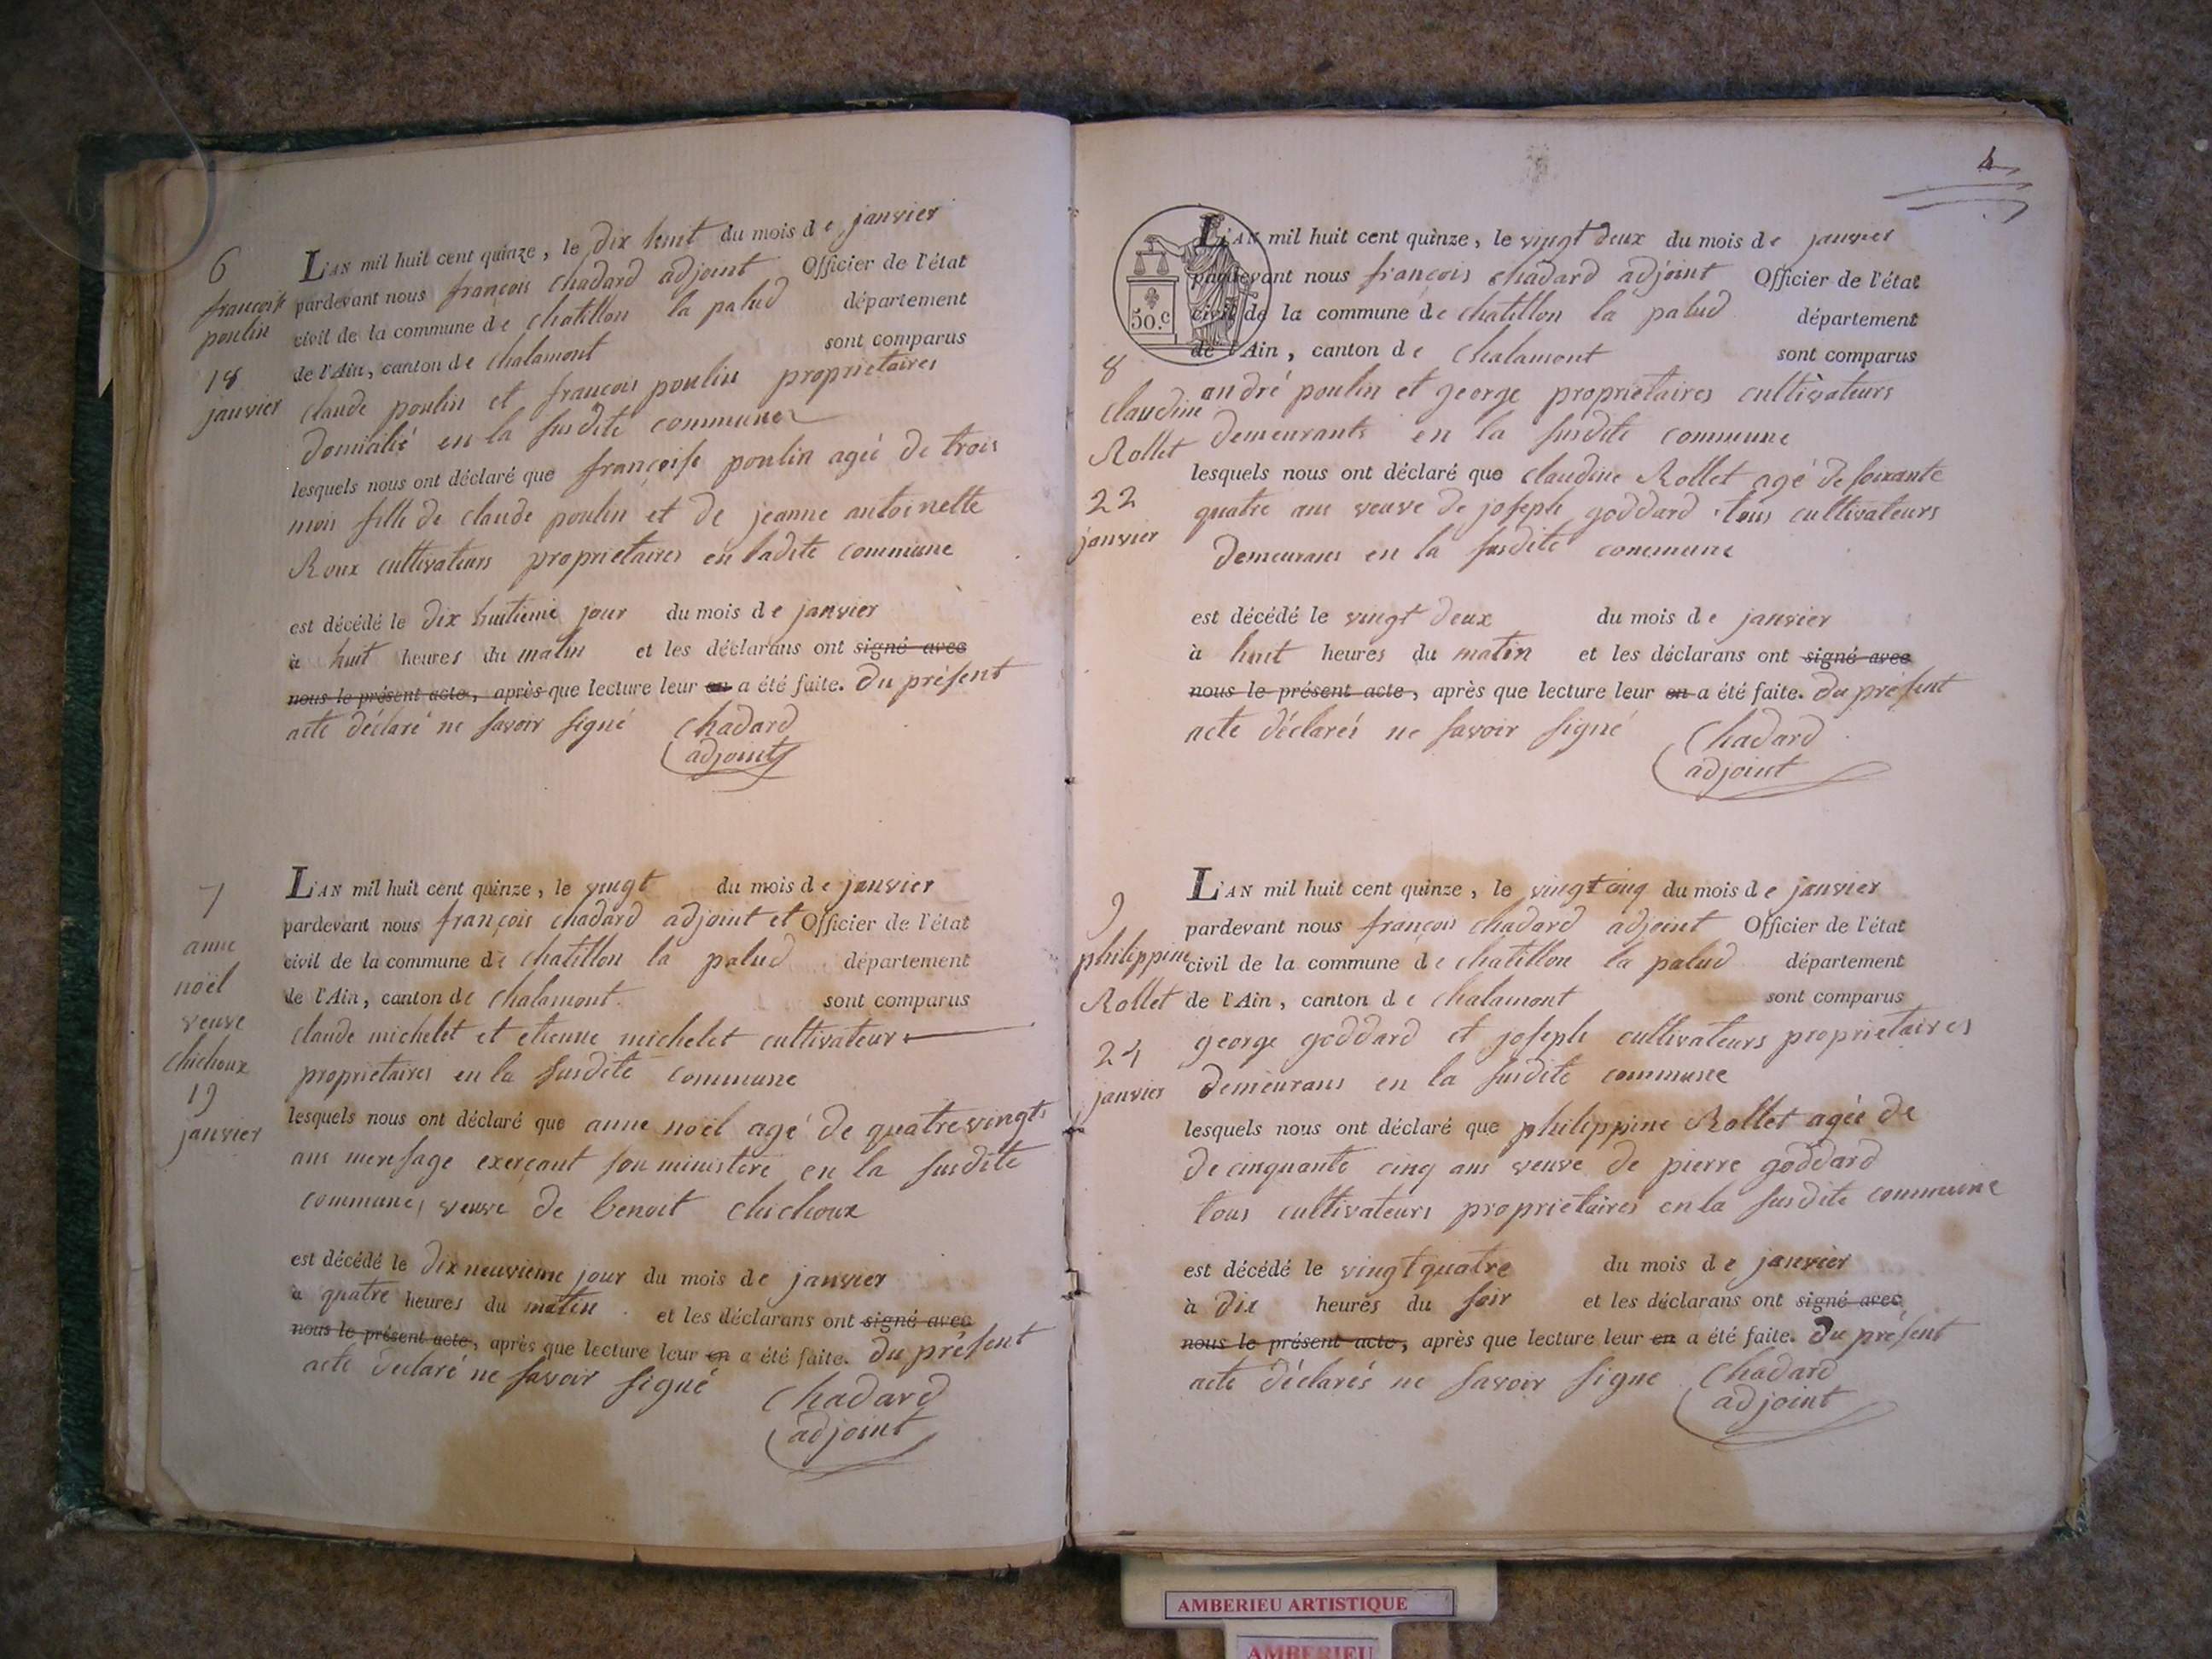 6
françoise
poulin
18
janvier
L'AN mil huit cent quinze, le dix huit du mois de janvier
pardevant nous françois chadard adjoint Officier de l'état
civil de la commune de chatillon la palud département
de l'Ain, canton de chalamont sont comparus
claude poulin et francois poulin proprietaires
domicilié en la susdite commune
lesquels nous ont déclaré que françoise poulin agée de trois
mois fille de claude poulin et de jeanne antoinette
Roux cultivateurs proprietaires en ladite commune
est décédé le dix huitieme jour du mois de janvier
à huit heures du matin et les déclarans ont signé avec
nous le présent acte, après que lecture leur en a été faite. du présent
acte déclaré ne savoir signé chadard
adjoint
7
anne
noël
veuve
chichoux
19
janvier
L'AN mil huit cent quinze, le vingt du mois de janvier
pardevant nous françois chadard adjoint et Officier de l'état
civil de la commune de chatillon la palud département
de l'Ain, canton de chalamont. sont comparus
claude michelet et etienne michelet cultivateur
proprietaires en la susdite commune
lesquels nous ont déclaré que anne noël agé de quatre vingts
ans meresage exerçant son ministere en la susdite
commune, veuve de benoit chichoux
est décédé le dix neuvieme jour du mois de janvier
à quatre heures du matin et les déclarans ont signé avec
nous le présent acte, après que lecture leur en a été faite. du présent
acte déclaré ne savoir signé chadard
adjoint
50.c
L'AN mil huit cent quinze, le vingt deux du mois de janvier
pardevant nous françois chadard adjoint Officier de l'état
civil de la commune de chatillon la palud département
de l'Ain, canton de chalamont sont comparus
8
claudine
Rollet
22
janvier
andré poulin et george proprietaires cultivateurs
demeurants en la susdite commune
lesquels nous ont déclaré que claudine Rollet agé de soixante
quatre ans veuve de joseph goddard tous cultivateurs
demeurans en la susdite commune
est décédé le vingt deux du mois de janvier
à huit heures du matin et les déclarans ont signé avec
nous le présent acte, après que lecture leur en a été faite. du présent
acte déclarés ne savoir signé Chadard
adjoint
9
philippine
Rollet
24
janvier
L'AN mil huit cent quinze, le vingt cinq du mois de janvier
pardevant nous françois chadard adjoint Officier de l'état
civil de la commune de chatillon la palud département
de l'Ain, canton de chalamont sont comparus
george goddard et joseph cultivateurs proprietaires
demeurans en la susdite commune
lesquels nous ont déclaré que philippine Rollet agée de
de cinquante cinq ans veuve de pierre goddard
tous cultivateurs proprietaires en la susdite commune
est décédé le vingt quatre du mois de janvier
à dix heures du soir et les déclarans ont signé avec
nous le présent acte, après que lecture leur en a été faite. du présent
acte déclarés ne savoir signe Chadard
adjoint
AMBERIEU ARTISTIQUE
AMBERIEU